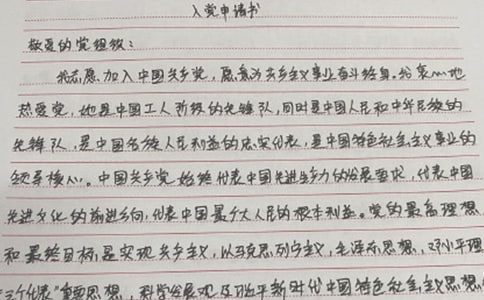 入党申请书
敬爱的党组织：
我志愿加入中国共产党，愿意为共产主义事业奋斗终身。我衷心地
热爱党，她是中国工人阶级的先锋队，同时是中国人民和中华民族的
先锋队，是中国各族人民利益的忠实代表，是中国特色社会主义事业的
领导核心。中国共产党始终代表中国先进生产力的发展要求，代表中国
先进文化的前进方向，代表中国最广大人民的根本利益。党的最高理想
和最终目标是实现共产主义，以马克思列宁主义，毛泽东思想，邓小平理
"三个代表"重要思想，科学发展观及习近平新时代中国特色社会主义思想